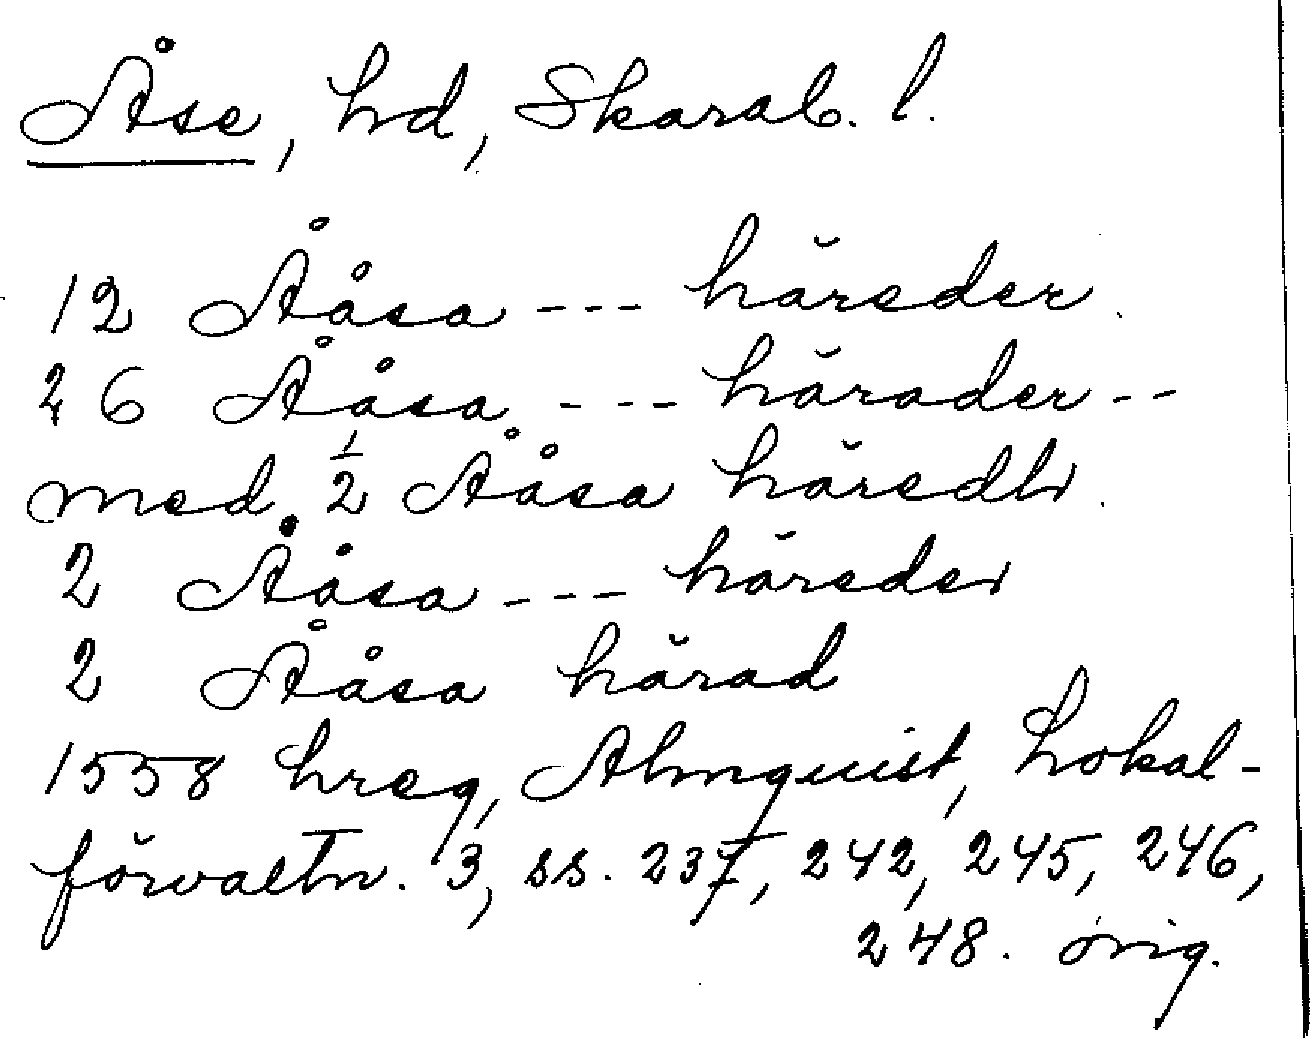 Åse, hd, Skarab. l.
12 Ååsa --- häreder.
26 Ååsa --- härader --
med ½ Ååsa häredhr.
2 Ååsa --- häreder
2 Ååsa härad
1558 hreg, Almquist, Lokal-
förvaltn. 3, ss. 237, 242, 245, 246,
248. orig.